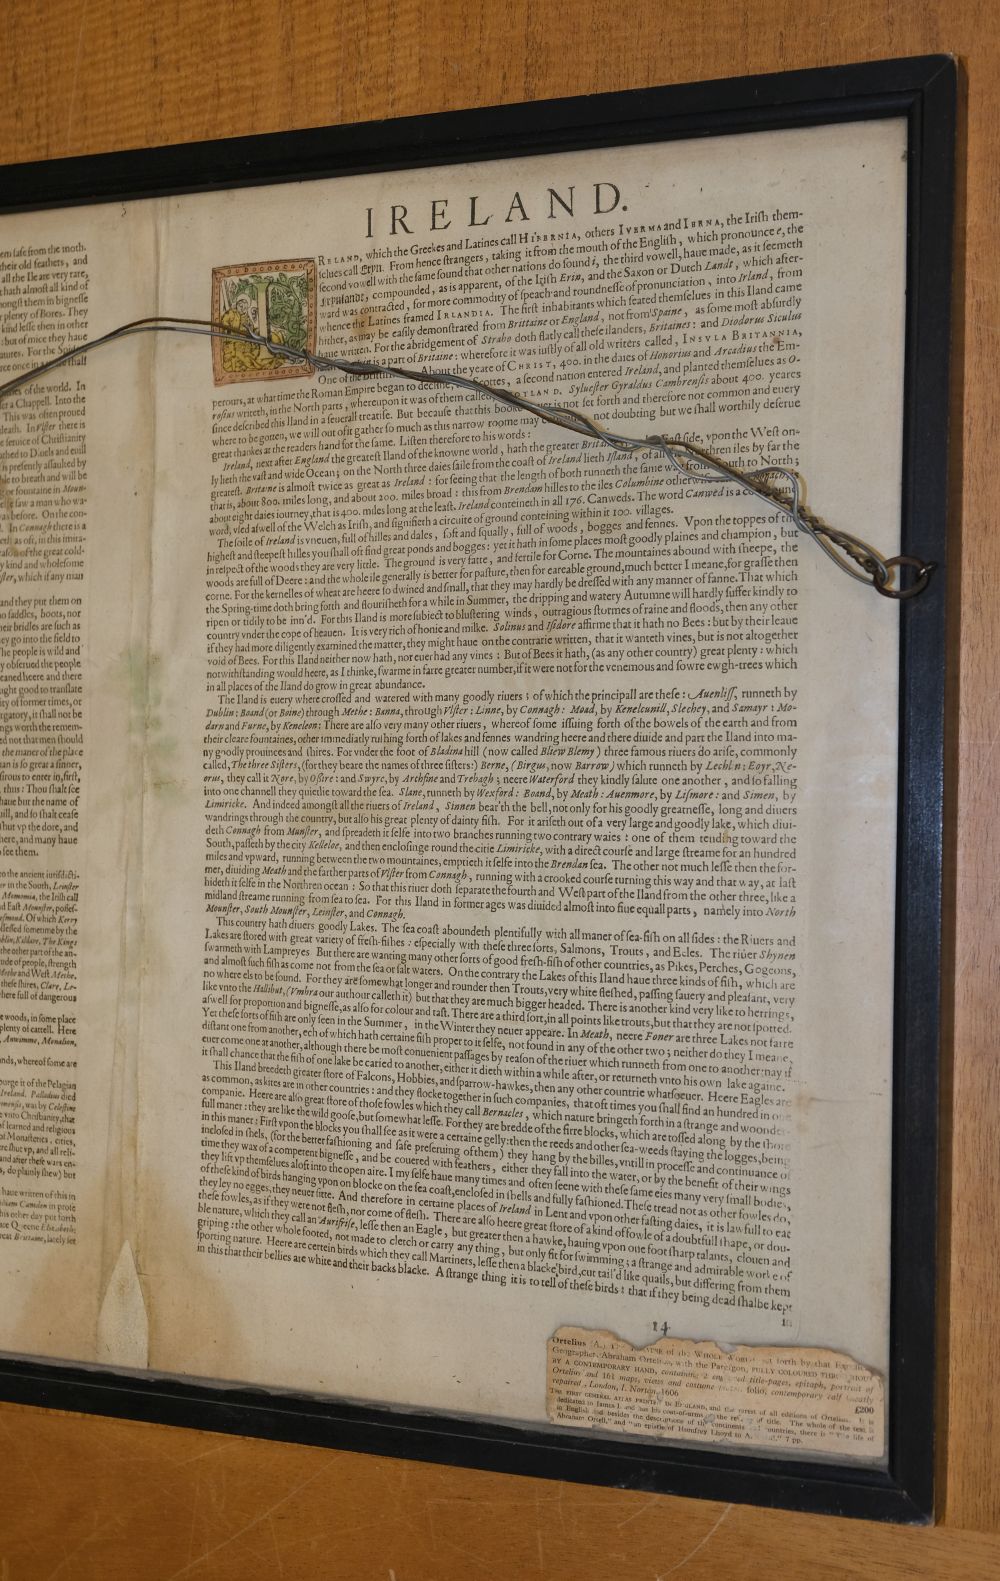 em safe from the moth.
their old feathers, and
all the Ile are very rare,
hath almost all kind of
mongst them in bignesse
plenty of Bores. They
kind lesse then in other
: but of mice they haue
atures. For the
rce once in shall
es of the world. In
er a Chappell. Into the
This was often proued
death. In Vlster there is
e seruice of Christianity
athed to Diuels and euill
is presently assaulted by
le to breath and will be
or fountaine in Moun-
else saw a man who wa-
as before. On the con-
. In Connagh there is a
eth as oft, in this imita-
ason of the great cold-
y kind and wholesome
ster, which if any man
and they put them on
no saddles, boots, nor
heir bridles are such as
ey go into the field to
he people is wild and
y obserued the people
eaned heere and there
ught good to translate
ity of former times, or
rgatory, it shall not be
ngs worth the remem-
ed not that men should
the maner of the place
an is so great a sinner,
sirous to enter in, first,
thus: Thou shalt see
haue but the name of
ill, and so shalt cease
shut vp the dore, and
here, and many haue
o see them.
to the ancient iurisdicti-
er in the South, Leinster
Momonia, the Irish call
d East Mounster, posses-
esmond. Of which Kerry
ssessed sometime by the
blin, Kildare, The Kings
the other part of the an-
ude of people, strength
Methe and West Methe.
these shires, Clare, Le-
here full of dangerous
e woods, in some place
plenty of cattell. Here
, Annimme, Monalion,
nds, whereof some are
purge it of the Pelagian
Ireland. Palladius died
, was by Celestine
e vnto Christianity, that
of learned and religious
of Monasteries, cities,
re shut vp, and all reli-
and after these wars en-
s, do plainly shew) but
haue written of this in
illiam Camden in prose
his other day put forth
ate Queene Elizabeth:
reat Brittaine, lately set
IRELAND.
IRELAND, which the Greekes and Latines call HIBERNIA, others IVERMA and IERNA, the Irish them-
selues call Eryn. From hence strangers, taking it from the mouth of the English, which pronounce e, the
second vowell with the same sound that other nations do sound i, the third vowell, haue made, as it seemeth
Irynlandt, compounded, as is apparent, of the Irish Erin, and the Saxon or Dutch Landt, which after-
ward was contracted, for more commodity of speach and roundnesse of pronunciation, into Irland, from
whence the Latines framed IRLANDIA. The first inhabitants which seated themselues in this Iland came
hither, as may be easily demonstrated from Brittaine or England, not from Spaine, as some most absurdly
haue written. For the abridgement of Strabo doth flatly call these ilanders, Britaines: and Diodorus Siculus
is a part of Britaine: wherefore it was iustly of all old writers called, INSVLA BRITANNIA,
One of the About the yeare of CHRIST, 400. in the dates of Honorius and Arcadius the Em-
perours, at what time the Roman Empire began to decline, the Scottes, a second nation entered Ireland, and planted themselues as O-
rosius writeth, in the North parts, whereupon it was of them called, SCOTLAND. Syluester Gyraldus Cambrensis about 400. yeares
since described this Iland in a seuerall treatise. But because that this booke is not set forth and therefore not common and euery
where to be gotten, we will out of it gather so much as this narrow roome may not doubting but we shall worthily deserue
great thankes at the readers hand for the same. Listen therefore to his words:
Ireland, next after England the greatest Iland of the knowne world, hath the greater on the East side, vpon the West on-
ly lieth the vast and wide Ocean; on the North three daies saile from the coast of Ireland lieth Island, of all the Northren iles by far the
greatest. Britane is almost twice as great as Ireland: for seeing that the length of both runneth the same way from South to North;
that is, about 800. miles long, and about 200. miles broad: this from Brendam hilles to the iles Columbine otherwise
about eight daies iourney, that is 400. miles long at the least. Ireland conteineth in all 176. Canweds. The word Canwed is a compound
word, vsed aswell of the Welch as Irish, and signifieth a circuite of ground conteining within it 100. villages.
The soile of Ireland is vneuen, full of hilles and dales, soft and squally, full of woods, bogges and fennes. Vpon the toppes of the
highest and steepest hilles you shall oft find great ponds and bogges: yet it hath in some places most goodly plaines and champion, but
in respect of the woods they are very little. The ground is very fatte, and fertile for Corne. The mountaines abound with sheepe, the
woods are full of Deere: and the whole ile generally is better for pasture, then for eareable ground, much better I meane, for grasse then
corne. For the kernelles of wheat are heere so dwined and small, that they may hardly be dressed with any manner of fanne. That which
the Spring-time doth bring forth and flourisheth for a while in Summer, the dripping and watery Autumne will hardly suffer kindly to
ripen or tidily to be inn'd. For this Iland is more subiect to blustering winds, outragious stormes of raine and floods, then any other
country vnder the cope of heauen. It is very rich of honie and milke. Solinus and Isidore affirme that it hath no Bees: but by their leaue
if they had more diligently examined the matter, they might haue on the contrarie written, that it wanteth vines, but is not altogether
void of Bees. For this Iland neither now hath, nor euer had any vines: But of Bees it hath, (as any other country) great plenty: which
notwithstanding would heere, as I thinke, swarme in farre greater number, if it were not for the venemous and sowre ewgh-trees which
in all places of the Iland do grow in great abundance.
The Iland is euery where crossed and watered with many goodly riuers; of which the principall are these: Auenliff, runneth by
Dublin: Boand (or Boine) through Methe: Banna, through Vlster: Linne, by Connagh: Moad, by Kenelcunill, Slechey, and Samayr: Mo-
darn and Furne, by Keneleon: There are also very many other riuers, whereof some issuing forth of the bowels of the earth and from
their cleare fountaines, other immediatly rushing forth of lakes and fennes wandring heere and there diuide and part the Iland into ma-
ny goodly prouinces and shires. For vnder the foot of Bladina hill (now called Bliew Blemy) three famous riuers do arise, commonly
called, The three Sisters, (for they beare the names of three sisters:) Berne, (Birgus, now Barrow) which runneth by Lechlin: Eoyr, Ne-
orus, they call it Nore, by Osire: and Swyre, by Archfine and Trebagh; neere Waterford they kindly salute one another, and so falling
into one channell they quietlie toward the sea. Slane, runneth by Wexford: Boand, by Meath: Auenmore, by Lismore: and Simen, by
Limiricke. And indeed amongst all the riuers of Ireland, Sinnen bear'th the bell, not only for his goodly greatnesse, long and diuers
wandrings through the country, but also his great plenty of dainty fish. For it ariseth out of a very large and goodly lake, which diui-
deth Connagh from Munster, and spreadeth it selfe into two branches running two contrary waies: one of them tending toward the
South, passeth by the city Kelleloe, and then enclosinge round the citie Limiricke, with a direct course and large streame for an hundred
miles and vpward, running between the two mountaines, emptieth it selfe into the Brendan sea. The other not much lesse then the for-
mer, diuiding Meath and the farther parts of Vlster from Connagh, running with a crooked course turning this way and that way, at last
hideth it selfe in the Northren ocean: So that this riuer doth separate the fourth and West part of the Iland from the other three, like a
midland streame running from sea to sea. For this Iland in former ages was diuided almost into fiue equall parts, namely into North
Mounster, South Mounster, Leinster, and Connagh.
This country hath diuers goodly Lakes. The sea coast aboundeth plentifully with all maner of sea-fish on all sides: the Riuers and
Lakes are stored with great variety of fresh-fishes: especially with these three sorts, Salmons, Trouts, and Eeles. The riuer Shynen
swarmeth with Lampreyes. But there are wanting many other sorts of good fresh-fish of other countries, as Pikes, Perches, Gogeons,
and almost such fish as come not from the sea or salt waters. On the contrary the Lakes of this Iland haue three kinds of fish, which are
no where els to be found. For they are somewhat longer and rounder then Trouts, very white fleshed, passing sauery and pleasant, very
like vnto the Hallibut, (Vmbra our authour calleth it) but that they are much bigger headed. There is another kind very like to herrings,
aswell for proportion and bignesse, as also for colour and tast. There are a third sort, in all points like trouts, but that they are not spotted.
Yet these sorts of fish are only seen in the Summer, in the Winter they neuer appeare. In Meath, neere Foner are three Lakes not farre
distant one from another, ech of which hath certaine fish proper to it selfe, not found in any of the other two; neither do they I meane,
euer come one at another, although there be most conuenient passages by reason of the riuer which runneth from one to another: nay if
it shall chance that the fish of one lake be caried to another, either it dieth within a while after, or returneth vnto his own lake againe.
This Iland breedeth greater store of Falcons, Hobbies, and sparrow-hawkes, then any other country whatsoeuer. Heere Eagles are
as common, as kites are in other countries: and they flocke together in such companies, that oft times you shall find an hundred in one
companie. Heere are also great store of those fowles which they call Bernacles, which nature bringeth forth in a strange and woonder-
full maner: they are like the wild goose, but somewhat lesse. For they are bredde of the firre blocks, which are tossed along by the shore
in this maner: First vpon the blocks you shall see as it were a certaine gelly: then the reeds and other sea-weeds staying the logges, being
inclosed in shels, (for the better fashioning and safe preseruing of them) they hang by the billes, vntill in processe and continuance of
time they wax of a competent bignesse, and be couered with feathers, either they fall into the water, or by the benefit of their wings
they lift vp themselues aloft into the open aire. I my selfe haue many times and often seene with these same eies many very small bodies,
of these kind of birds hanging vpon on blocke on the sea coast, enclosed in shells and fully fashioned. These tread not as other fowles do,
they ley no egges, they neuer sitte. And therefore in certaine places of Ireland in Lent and vpon other fasting daies, it is lawfull to eat
these fowles, as if they were not flesh, nor come of flesh. There are also heere great store of a kind of fowle of a doubtfull shape, or dou-
ble nature, which they call an Aurifrise, lesse then an Eagle, but greater then a hawke, hauing vpon one foot sharp talants, clouen and
griping: the other whole footed, not made to cletch or carry any thing, but only fit for swimming; a strange and admirable worke of
sporting nature. Heere are certein birds which they call Martinets, lesse then a blacke bird, cut tail'd like quails, but differing from them
in this that their bellies are white and their backs blacke. A strange thing it is to tell of these birds: that if they being dead shalbe kept
in
14
Ortelius (A.) of the WHOLE WORLD set forth by that
Geographer, Abraham Ortelius, with the Parergon, FULLY COLOURED
BY A CONTEMPORARY HAND, containing 2 title-pages, epitaph, portrait of
Ortelius and 161 maps, views and costume folio, contemporary calf (neatly
repaired), London, I. Norton, 1606 £200
THE FIRST GENERAL ATLAS PRINTED IN ENGLAND, and the rarest of all editions of Ortelius. It is
dedicated to James I and has his coat-of-arms the title. The whole of the text is
in English and besides the descriptions of the continents countries, there is "The life of
Abraham Ortell," and "an epistle of Humfrey Lhoyd to A. " 7 pp.